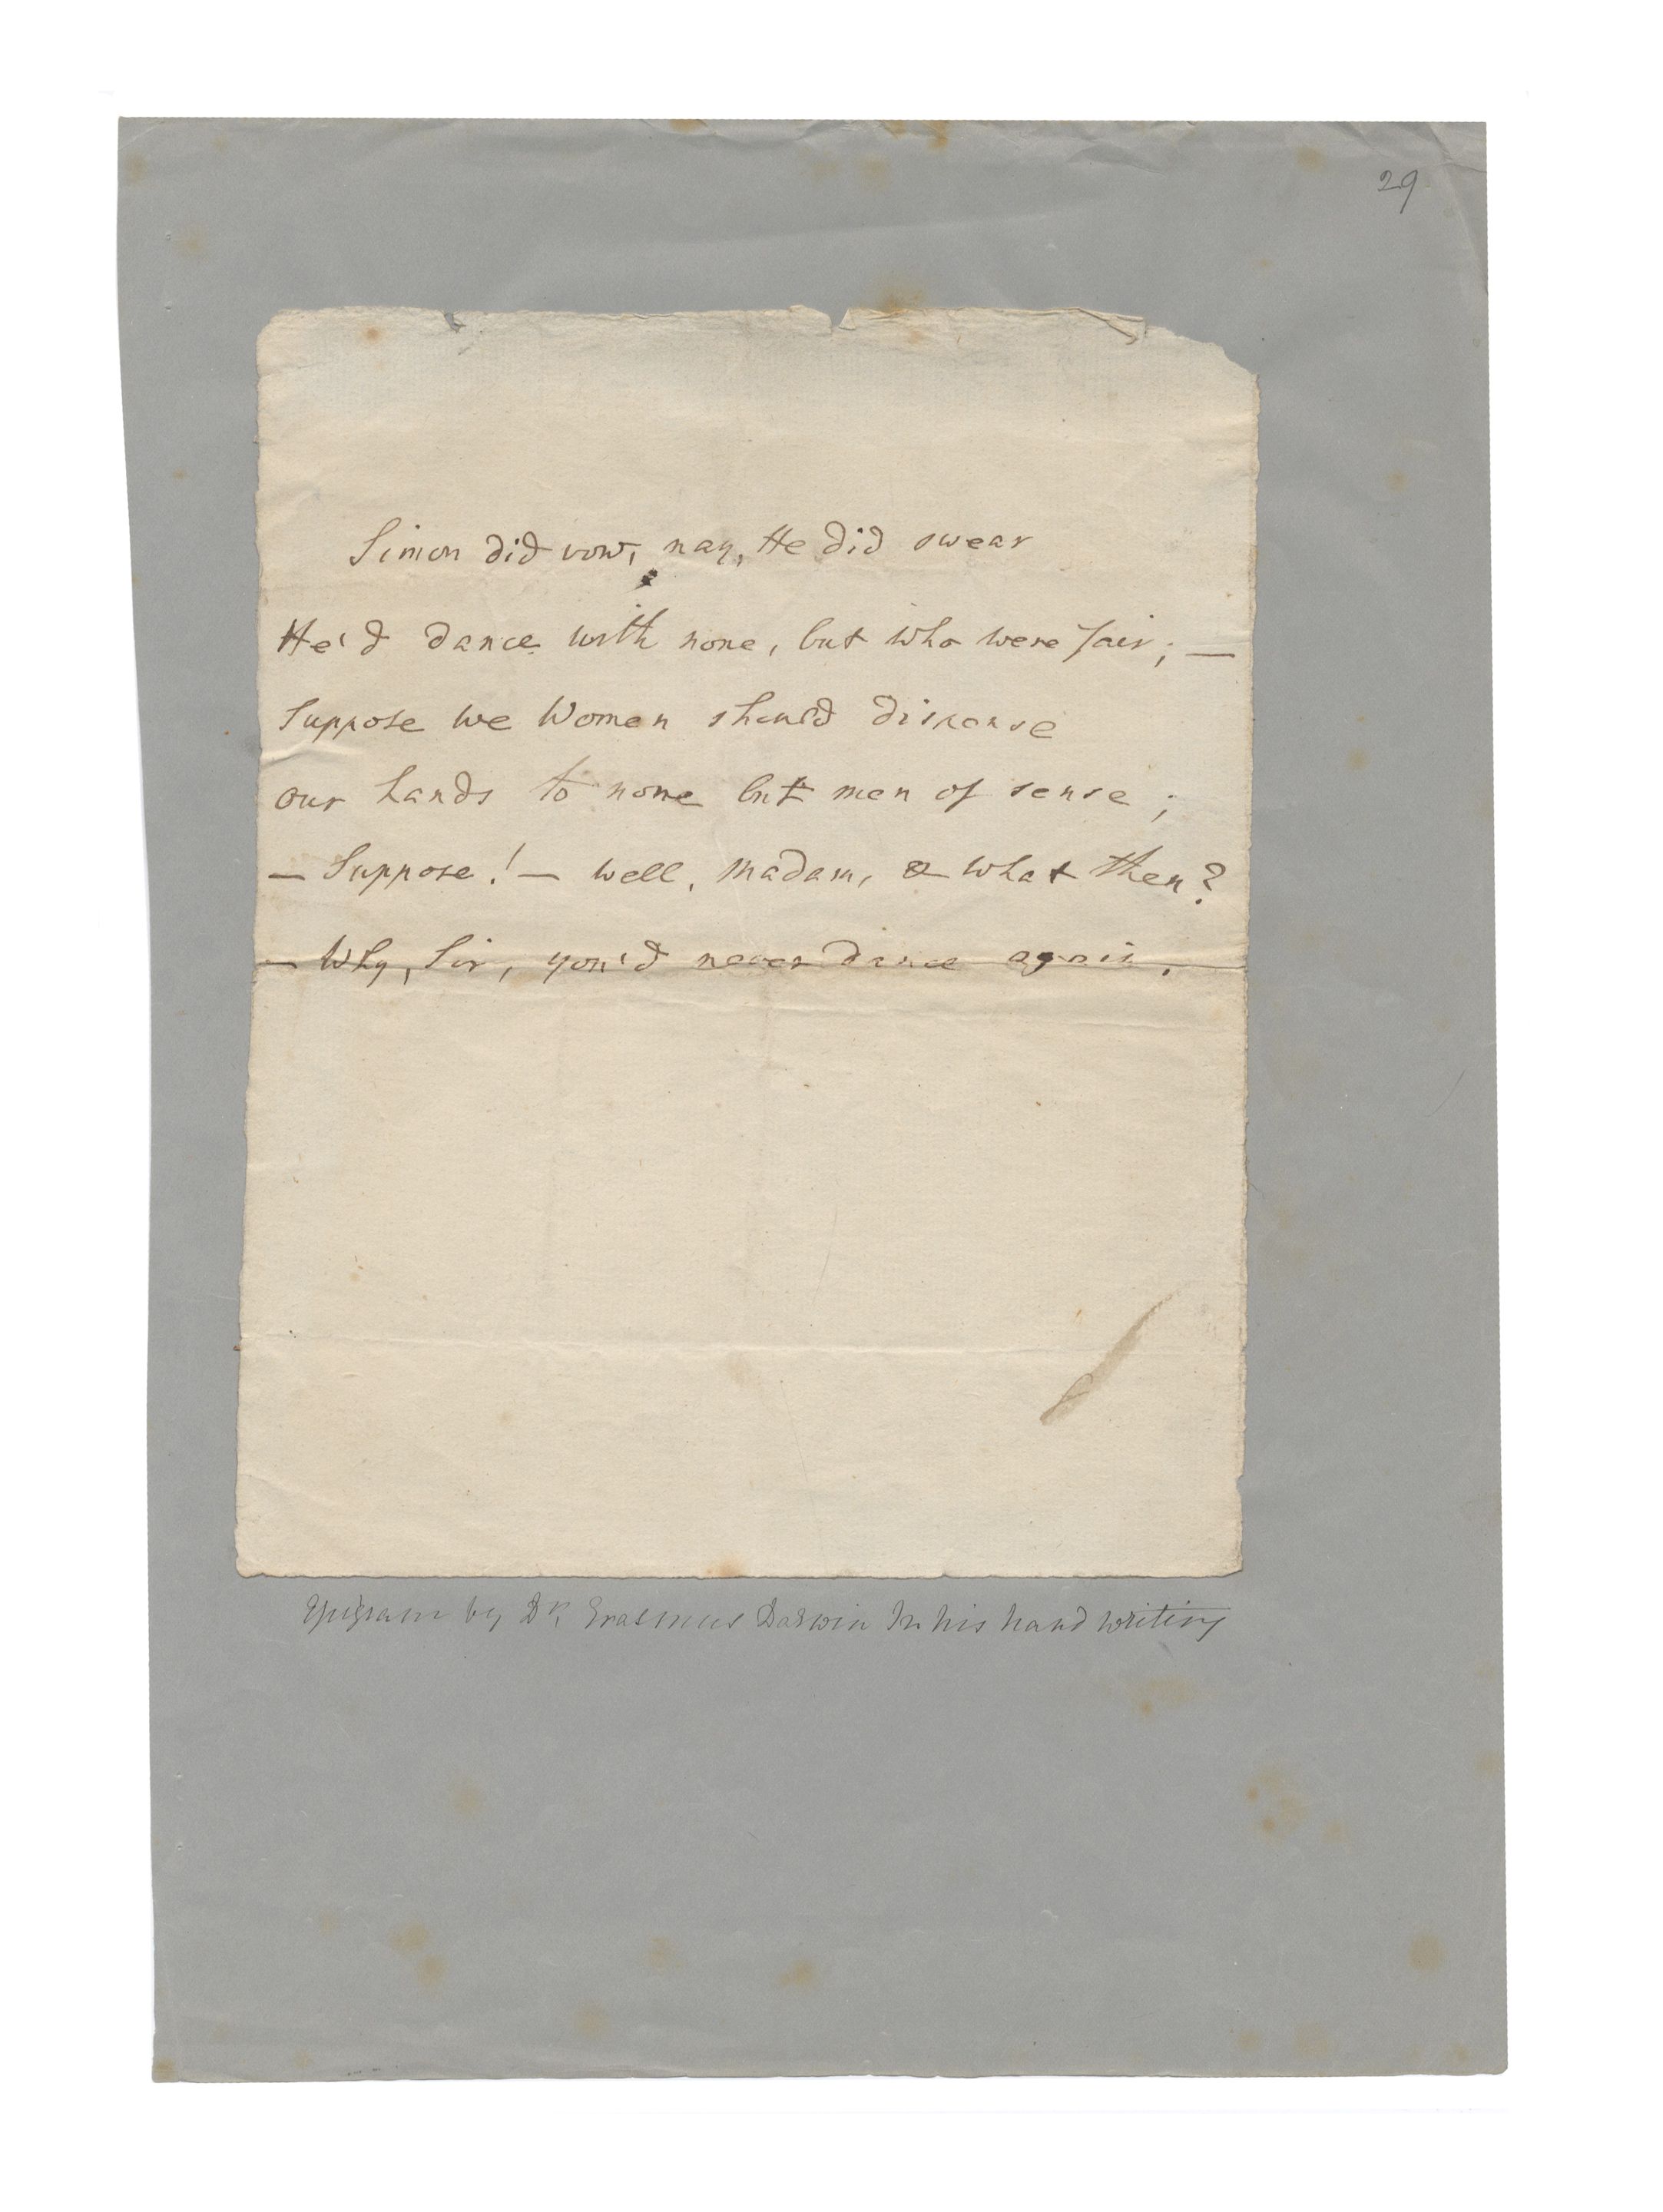 29
Simon did vow, nay, He did swear
He'd dance with none, but who were fair; —
Suppose we Women should dispense
our hands to none but men of sense;
— Suppose! — well, Madam, & what then?
— Why, Sir, you'd never dance again.
Epigram by Dr. Erasmus Darwin In his hand writing